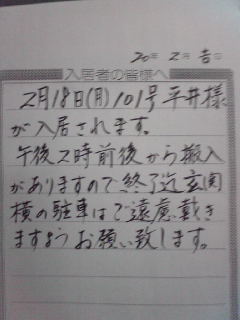 20年 2月 吉日
入居者の皆様へ
2月18日(月)101号平井様
が入居されます。
午後2時前後から搬入
がありますので終了迄玄関
横の駐車はご遠慮戴き
ますようお願い致します。